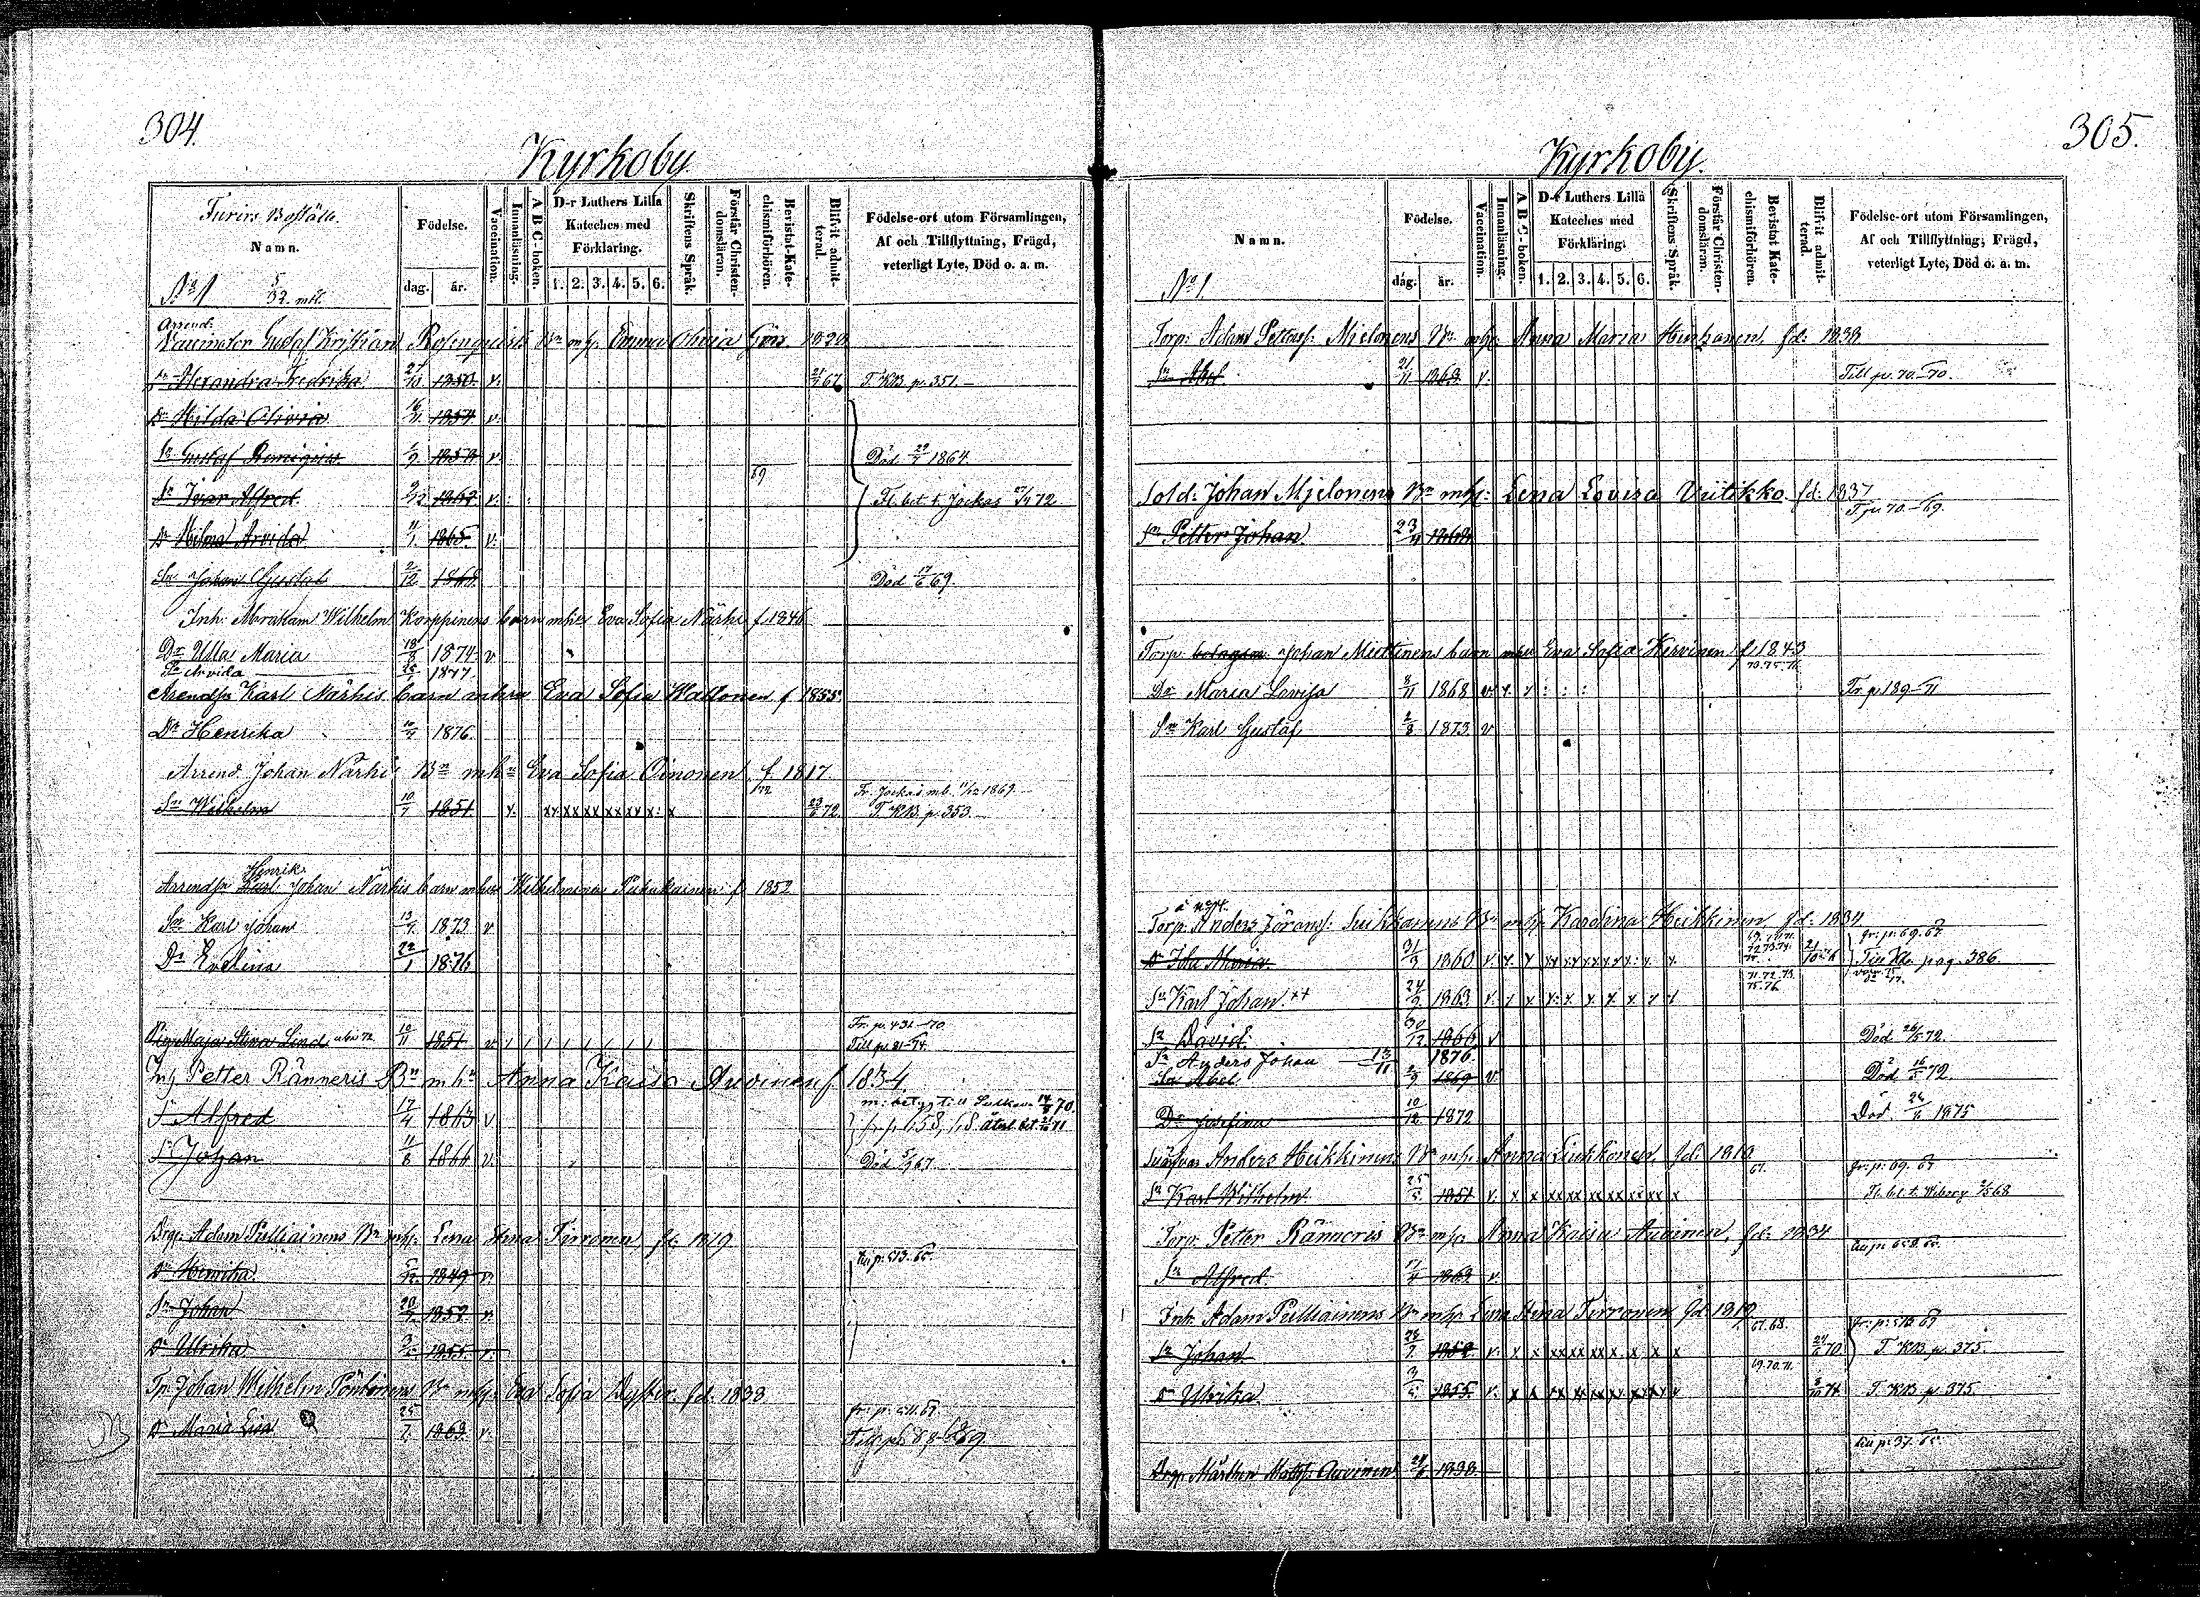 304.
Kyrkoby.
Furirs Boställe.
Namn.
No 1 5/32 mtl.
Födelse.
dag. år.
Vaccination.
Innanläsning.
A B C-boken.
D-r Luthers Lilla Kateches med Förklaring.
1. 2. 3. 4. 5. 6.
Skriftens Språk.
Förstår Christendomsläran.
Bevistat Katechismiförhören.
Blifvit admitterad.
Födelse-ort utom Församlingen, Af och Tillflyttning, Frägd, veterligt Lyte, Död o. a. m.
Arrend:
Vaccinator Gustaf Kristian Rosenqvists Bn mhu Emma Olivia
Dr Alexandra Fredrika 27/10 1850 v. 67 T. KB. p. 351.
Dr Hilda Olivia 16/11 1854 v.
Sn Gustaf Remigius 1/9 1858 v Död 1864.
69
Sn Ivar Alfred 9/12 1862 v. : : Fl. bet. t. Jockas 72
Dr Hilma Arvida 11/1 1865 v.
Sn Johan Gustaf 2/12 1868 Död 17/6 69.
Inh. Abraham Wilhelm Korppinens barn mhu Eva Sofia Närhi f. 1846
Dr Ulla Maria 18/8 1874 v
Sn Arvida 1877
Arendsn Karl Närhis barn mhu Eva Sofia Hallonen f 1855
Dr Henrika 10/7 1876.
Arrend. Johan Närhis Bn mhu Eva Sofia Oinonen f. 1817.
/72 Fr. Jockas mb. 1/12 1869
Sn Wilhelm 10/7 1851 x. xx xx xx xx xx x: x 72. T. KB. p. 353.
Henrik
Arrendsn Karl Johan Närhis barn mhu Wilhelmina f 1852
Sn Karl Johan 13/7 1873 v
Dr Evelina 22/1 1876
Fr. p. 431-70
Pig. Maja Stina Lind 10/11 1851 v / / / / / / / / Till p. 81-74.
Inh Petter Ränneris Bn mhu Anna Kaisa Auvinen f. 1834.
m: betyg till Sulkava 70.
Sn Alfred 17/4 1863 v
Sn Johan 11/8 1866 v. Död 5/9 67
Drgr. Adam Pulliainens Bn mhu Lena Stina Tirronen fd: 1819
Dr Henrika 5/12 1849 v.
Sn Johan 28/7 1852 v.
Dr Ulrika 3/5 1855 v.
Tp. Johan Wilhelm Pöntinens Bn mhu Eva Sofia Dyster fd. 1838
fr: p: 511. 67.
Dr Maria Lisa 25/2 1863 v.
305.
Kyrkoby.
Namn.
No 1.
Födelse.
dag. år.
Vaccination.
Innanläsning.
A B C-boken.
D-r Luthers Lilla Kateches med Förklaring.
1. 2. 3. 4. 5. 6.
Skriftens Språk.
Förstår Christendomsläran.
Bevistat Katechismiförhören.
Blifvit admitterad.
Födelse-ort utom Församlingen, Af och Tillflyttning, Frägd, veterligt Lyte, Död o. a. m.
Torp: Adam Petterss: Mielonens Bn mhu Anna Maria Hinkanen fd: 1838
Sn Abel 21/11 1863 v. Till p. 70.-70.
Sold: Johan Mjelonens Bn mhu: Lena Lovisa Viitikko. fd: 1837
T. p. 70.-69.
Sn Petter Johan 23/11 1868
Torp. bolagsm. Johan Miettinens barn mhu Eva Sofia Hirvinen f. 1843
70.75.76.
Dr Maria Lovisa 8/11 1868 v. x. x : : : Fr. p. 189-71
Sn Karl Gustaf 2/8 1873 v
Torp: Anders Göranss: Suikkanens Bn mhu Karolina Heikkinen fd: 1834
fr: p: 69. 67.
Dr Ida Maria 31/3 1860 v. x. x xx xx xx xx x: x. x. 21/10 76 Till Kb. pag. 386.
71.72.73. 75.76.
Sn Karl Johan ++ 24/9 1863 v. x x x: x x x x x x
Sn David 30/12 1866 v Död 26/5 72.
Sn Anders Johan 13/11 1876.
Sn Abel 2/9 1869 v Död 16/5 72.
Dr Josefina 10/12 1872 Död 1875
Svärfar Anders Heikkinens Bn mhu Anna Liukkonen fd: 1810
67. fr: p: 69. 67
Sn Karl Wilhelm 25/5 1851 v. x x xx xx xx xx xx xx x Fl. bt. t. Wiborg 68
Torp. Petter Ränneris Bn mhu Anna Kaisa Auvinen, fd: 1834
Sn Alfred 17/4 1863 v.
Inh. Adam Pulliainens Bn mhu Lena Stina Tirronen fd: 1819
67.68. fr: p: 513 67
Sn Johan 28/7 1852 v. x x xx xx xx x. x. x x 70 T. KB. p. 375.
69.70.71.
Dr Ulrika 3/5 1855 v. x x xx x xx xx x xx x x 71 T. KB p. 375.
Drgr. Mårten Matts: Auvinen 24/6 1838.